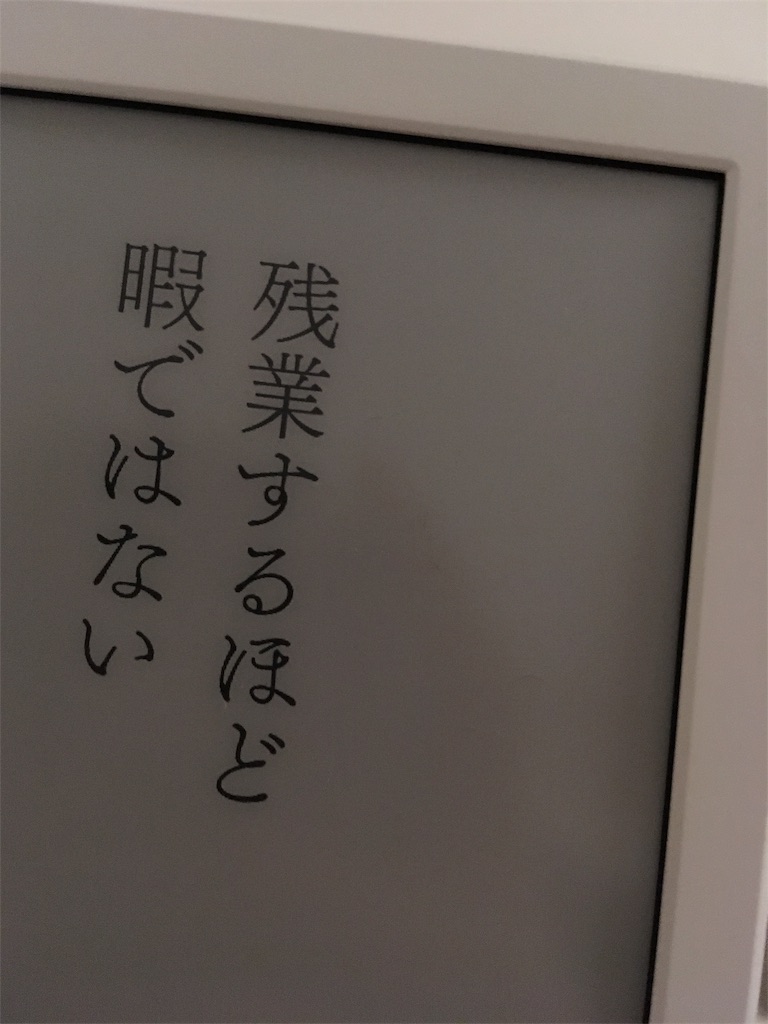 残業するほど
暇ではない